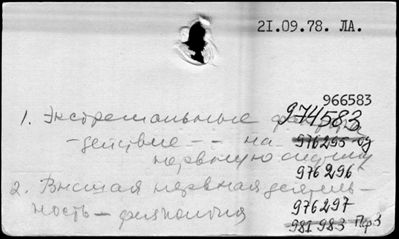 21.09.78. ЛА.
966583
974583
1. Экстремальные факторы
- действие -- на 976295 од
нервную систему
976296
2. Высшая нервная деятель-
ность - физиология 976297
981983 Пер3